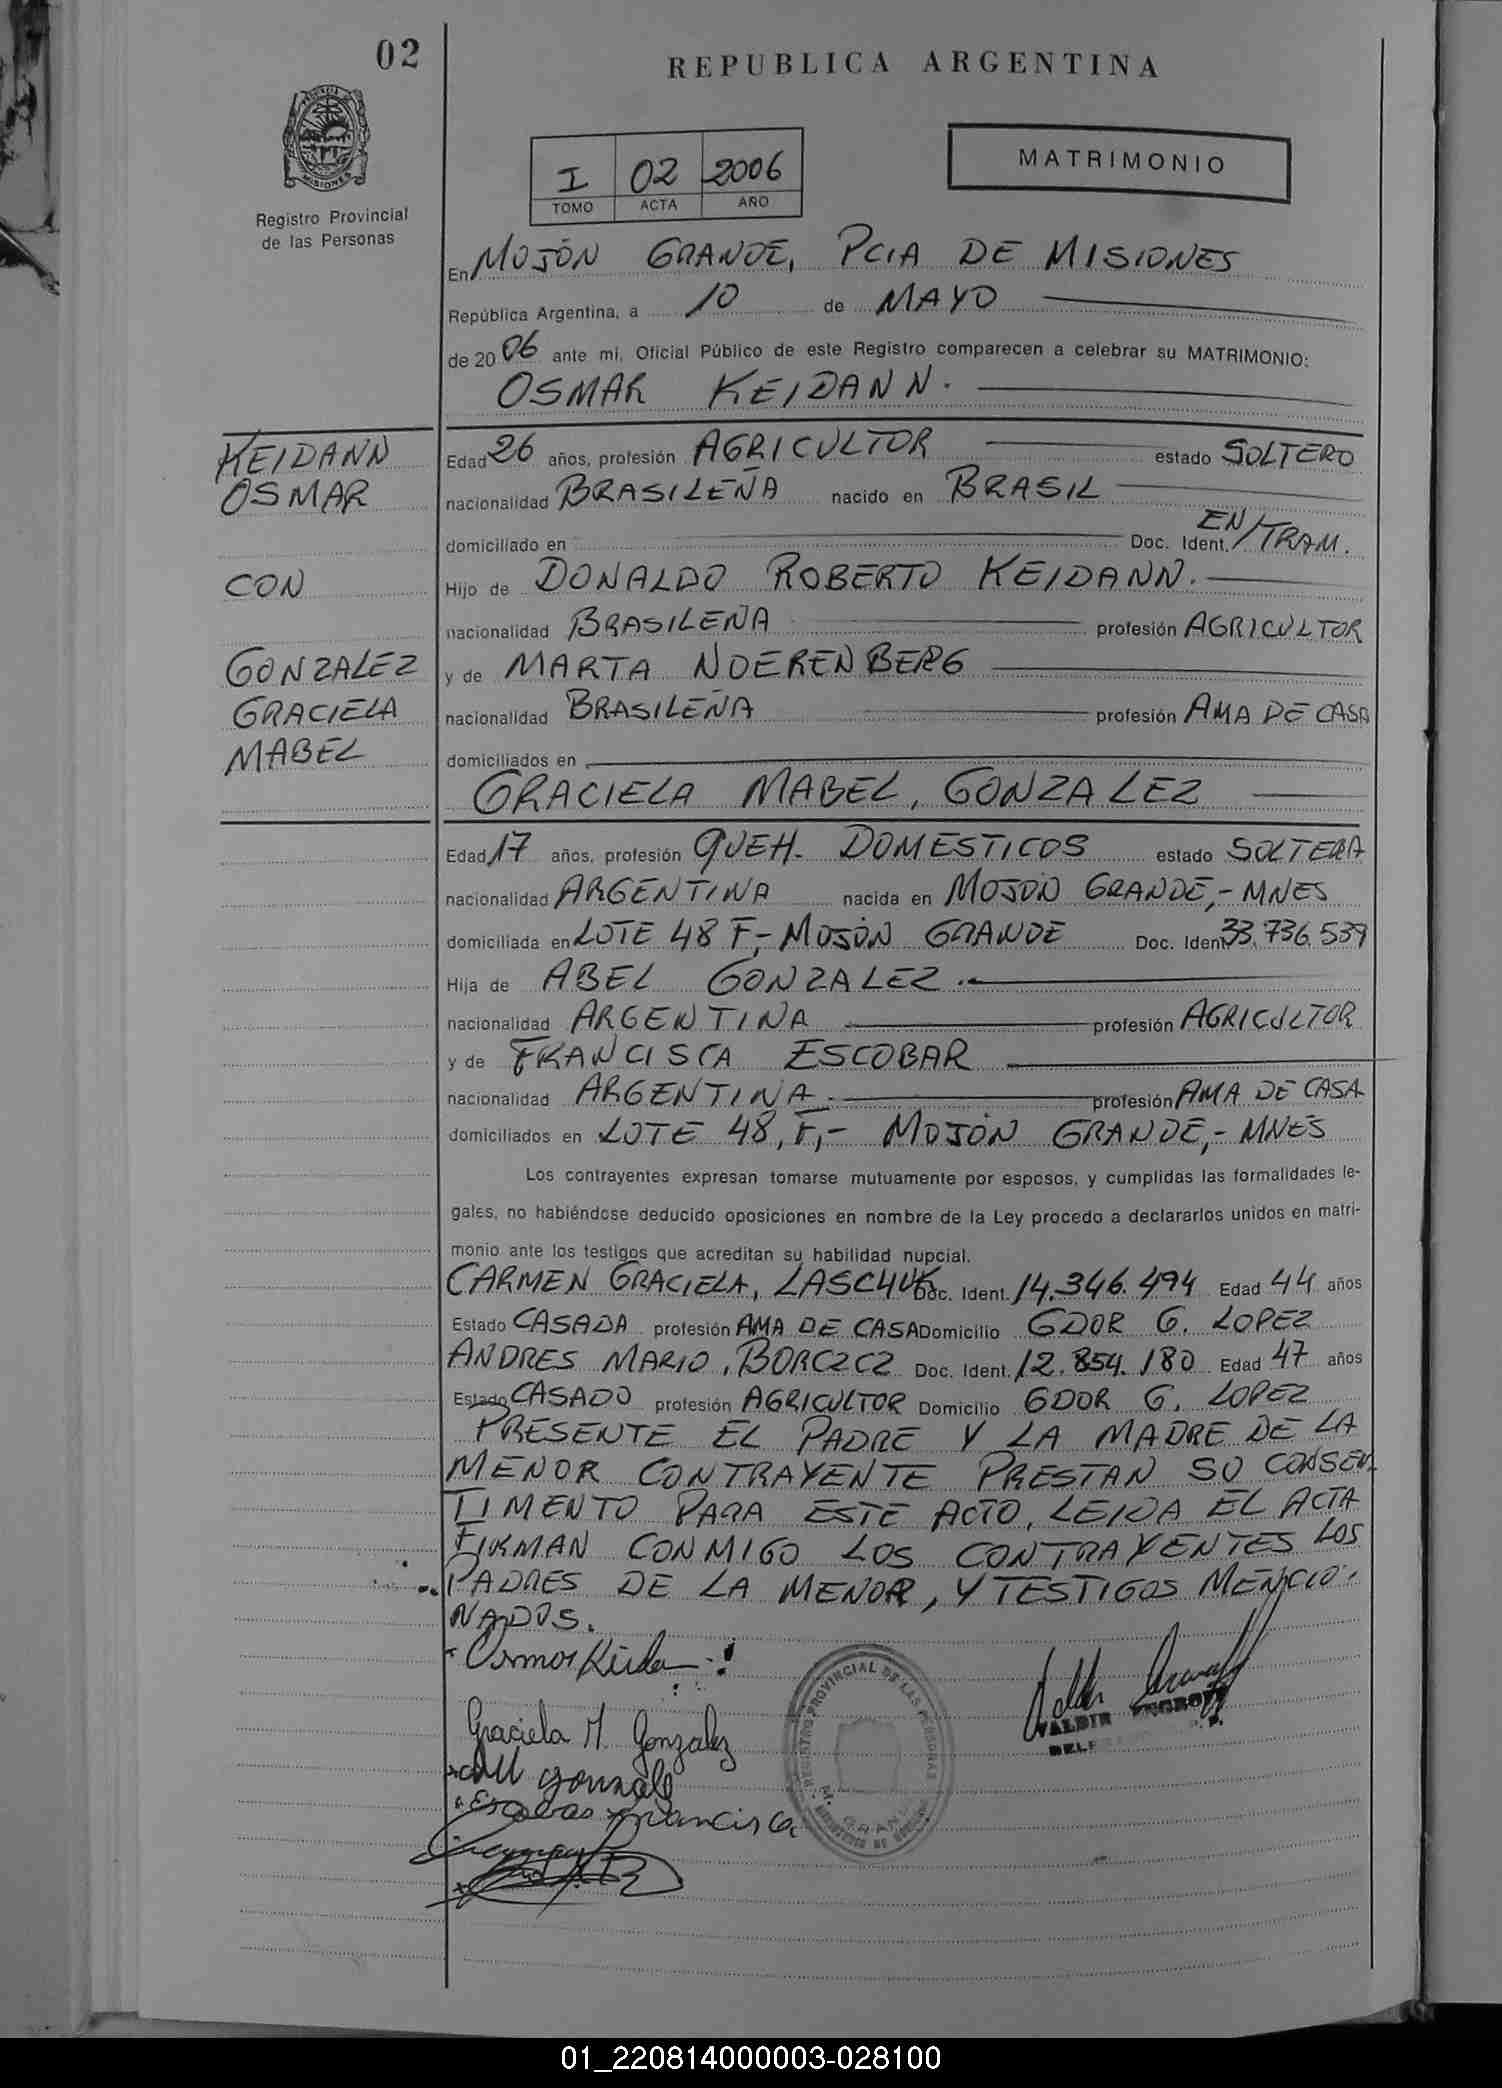 02
REPUBLICA ARGENTINA
MISIONES
Registro Provincial
de las Personas
I 02 2006
TOMO ACTA AÑO
MATRIMONIO
En MOJÓN GRANDE, PCIA DE MISIONES
República Argentina, a 10 de MAYO
de 2006 ante mi, Oficial Público de este Registro comparecen a celebrar su MATRIMONIO:
OSMAR KEIDANN.
KEIDANN
OSMAR
CON
GONZALEZ
GRACIELA
MABEL
Edad 26 años, profesión AGRICULTOR estado SOLTERO
nacionalidad BRASILEÑA nacido en BRASIL
domiciliado en Doc. Ident. EN/TRAM.
Hijo de DONALDO ROBERTO KEIDANN.
nacionalidad BRASILEÑA profesión AGRICULTOR
y de MARTA NOERENBERG
nacionalidad BRASILEÑA profesión AMA DE CASA
domiciliados en
GRACIELA MABEL, GONZALEZ
Edad 17 años, profesión QUEH. DOMESTICOS estado SOLTERA
nacionalidad ARGENTINA nacida en MOJÓN GRANDE,- MNES
domiciliada en LOTE 48 F,- MOJÓN GRANDE Doc. Ident. 33.736.539
Hija de ABEL GONZALEZ.
nacionalidad ARGENTINA profesión AGRICULTOR
y de FRANCISCA ESCOBAR
nacionalidad ARGENTINA. profesión AMA DE CASA
domiciliados en LOTE 48, F,- MOJÓN GRANDE,- MNES
Los contrayentes expresan tomarse mutuamente por esposos, y cumplidas las formalidades le-
gales, no habiéndose deducido oposiciones en nombre de la Ley procedo a declararlos unidos en matri-
monio ante los testigos que acreditan su habilidad nupcial.
CARMEN GRACIELA, LASCHUK Doc. Ident. 14.346.494 Edad 44 años
Estado CASADA profesión AMA DE CASA Domicilio GDOR G. LOPEZ
ANDRES MARIO, BORCZCZ Doc. Ident. 12.854.180 Edad 47 años
Estado CASADO profesión AGRICULTOR Domicilio GDOR G. LOPEZ
PRESENTE EL PADRE Y LA MADRE DE LA
MENOR CONTRAYENTE PRESTAN SU CONSEN
TIMENTO PARA ESTE ACTO, LEIDA EL ACTA
FIRMAN CONMIGO LOS CONTRAYENTES LOS
PADRES DE LA MENOR, Y TESTIGOS MENCIO-
NADOS.
Graciela M. Gonzalez
Escobar Francisca
REGISTRO PROVINCIAL DE LAS PERSONAS
VALDIR
01_220814000003-028100